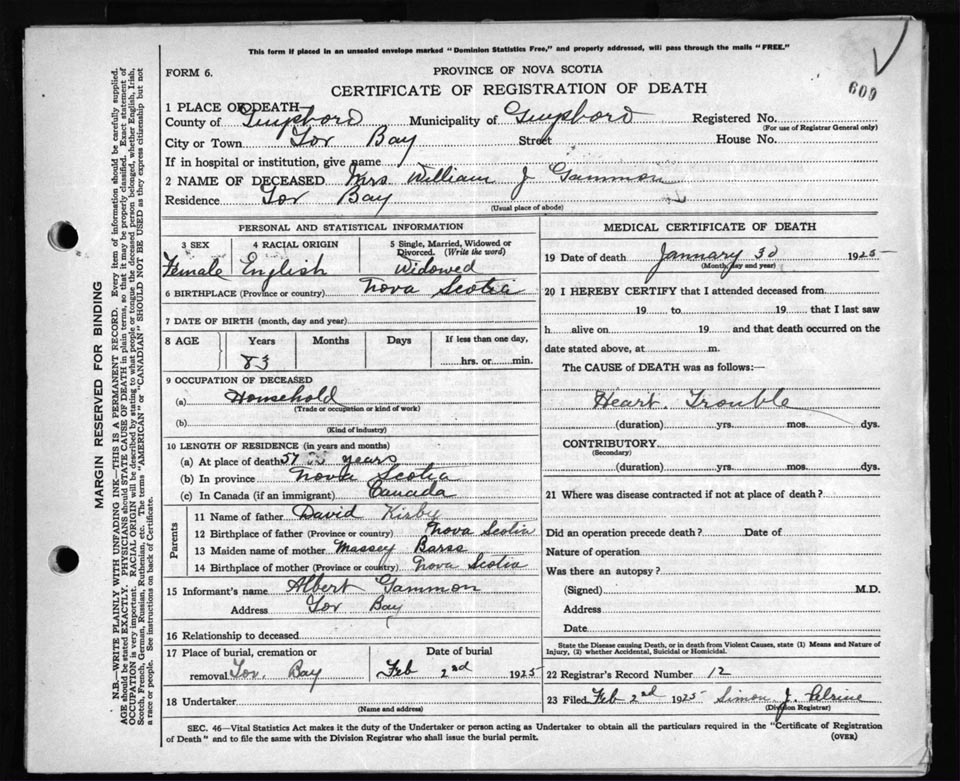 This form if placed in an unsealed envelope marked "Dominion Statistics Free," and properly addressed, will pass through the mails "FREE."
FORM 6.
PROVINCE OF NOVA SCOTIA
609
CERTIFICATE OF REGISTRATION OF DEATH
1 PLACE OF DEATH
County of Guysboro Municipality of Guysboro Registered No.
(For use of Registrar General only)
City or Town Tor Bay Street House No.
If in hospital or institution, give name
2 NAME OF DECEASED Mrs William J Gammon
Residence Tor Bay
(Usual place of abode)
PERSONAL AND STATISTICAL INFORMATION
3 SEX 4 RACIAL ORIGIN 5 Single, Married, Widowed or Divorced. (Write the word)
Female English Widowed
6 BIRTHPLACE (Province or country) Nova Scotia
7 DATE OF BIRTH (month, day and year)
8 AGE Years Months Days If less than one day,
83 hrs. or min.
9 OCCUPATION OF DECEASED
(a) Household
(Trade or occupation or kind of work)
(b)
(Kind of industry)
10 LENGTH OF RESIDENCE (in years and months)
(a) At place of death 57 years
(b) In province Nova Scotia
(c) In Canada (if an immigrant) Canada
Parents
11 Name of father David Kirby
12 Birthplace of father (Province or country) Nova Scotia
13 Maiden name of mother Massey Barss
14 Birthplace of mother (Province or country) Nova Scotia
15 Informant's name Albert Gammon
Address Tor Bay
16 Relationship to deceased
17 Place of burial, cremation or Date of burial
removal Tor. Bay Feb 2nd 1925
18 Undertaker
(Name and address)
MEDICAL CERTIFICATE OF DEATH
19 Date of death January 30 1925
(Month, day and year)
20 I HEREBY CERTIFY that I attended deceased from
19 to 19 that I last saw
h alive on 19 and that death occurred on the
date stated above, at m.
The CAUSE of DEATH was as follows:—
Heart Trouble
(duration) yrs. mos. dys.
CONTRIBUTORY
(Secondary)
(duration) yrs. mos. dys.
21 Where was disease contracted if not at place of death?
Did an operation precede death? Date of
Nature of operation
Was there an autopsy?
(Signed) M.D.
Address
Date
State the Disease causing Death, or in death from Violent Causes, state (1) Means and Nature of
Injury, (2) whether Accidental, Suicidal or Homicidal.
22 Registrar's Record Number 12
23 Filed Feb 2nd 1925 Simon J. Pelrine
(Division Registrar)
SEC. 46—Vital Statistics Act makes it the duty of the Undertaker or person acting as Undertaker to obtain all the particulars required in the "Certificate of Registration
of Death" and to file the same with the Division Registrar who shall issue the burial permit. (OVER)
MARGIN RESERVED FOR BINDING
N.B.—WRITE PLAINLY WITH UNFADING INK—THIS IS A PERMANENT RECORD. Every item of information should be carefully supplied.
AGE should be stated EXACTLY. PHYSICIANS should STATE CAUSE OF DEATH in plain terms, so that it may be properly classified. Exact statement of
OCCUPATION is very important. RACIAL ORIGIN will be described by stating to what people or tongue the deceased person belonged, whether English, Irish,
Scotch, French, German, Russian, Ruthenian, etc. The terms "AMERICAN" or "CANADIAN" SHOULD NOT BE USED as they express citizenship but not
a race or people. See instructions on back of Certificate.